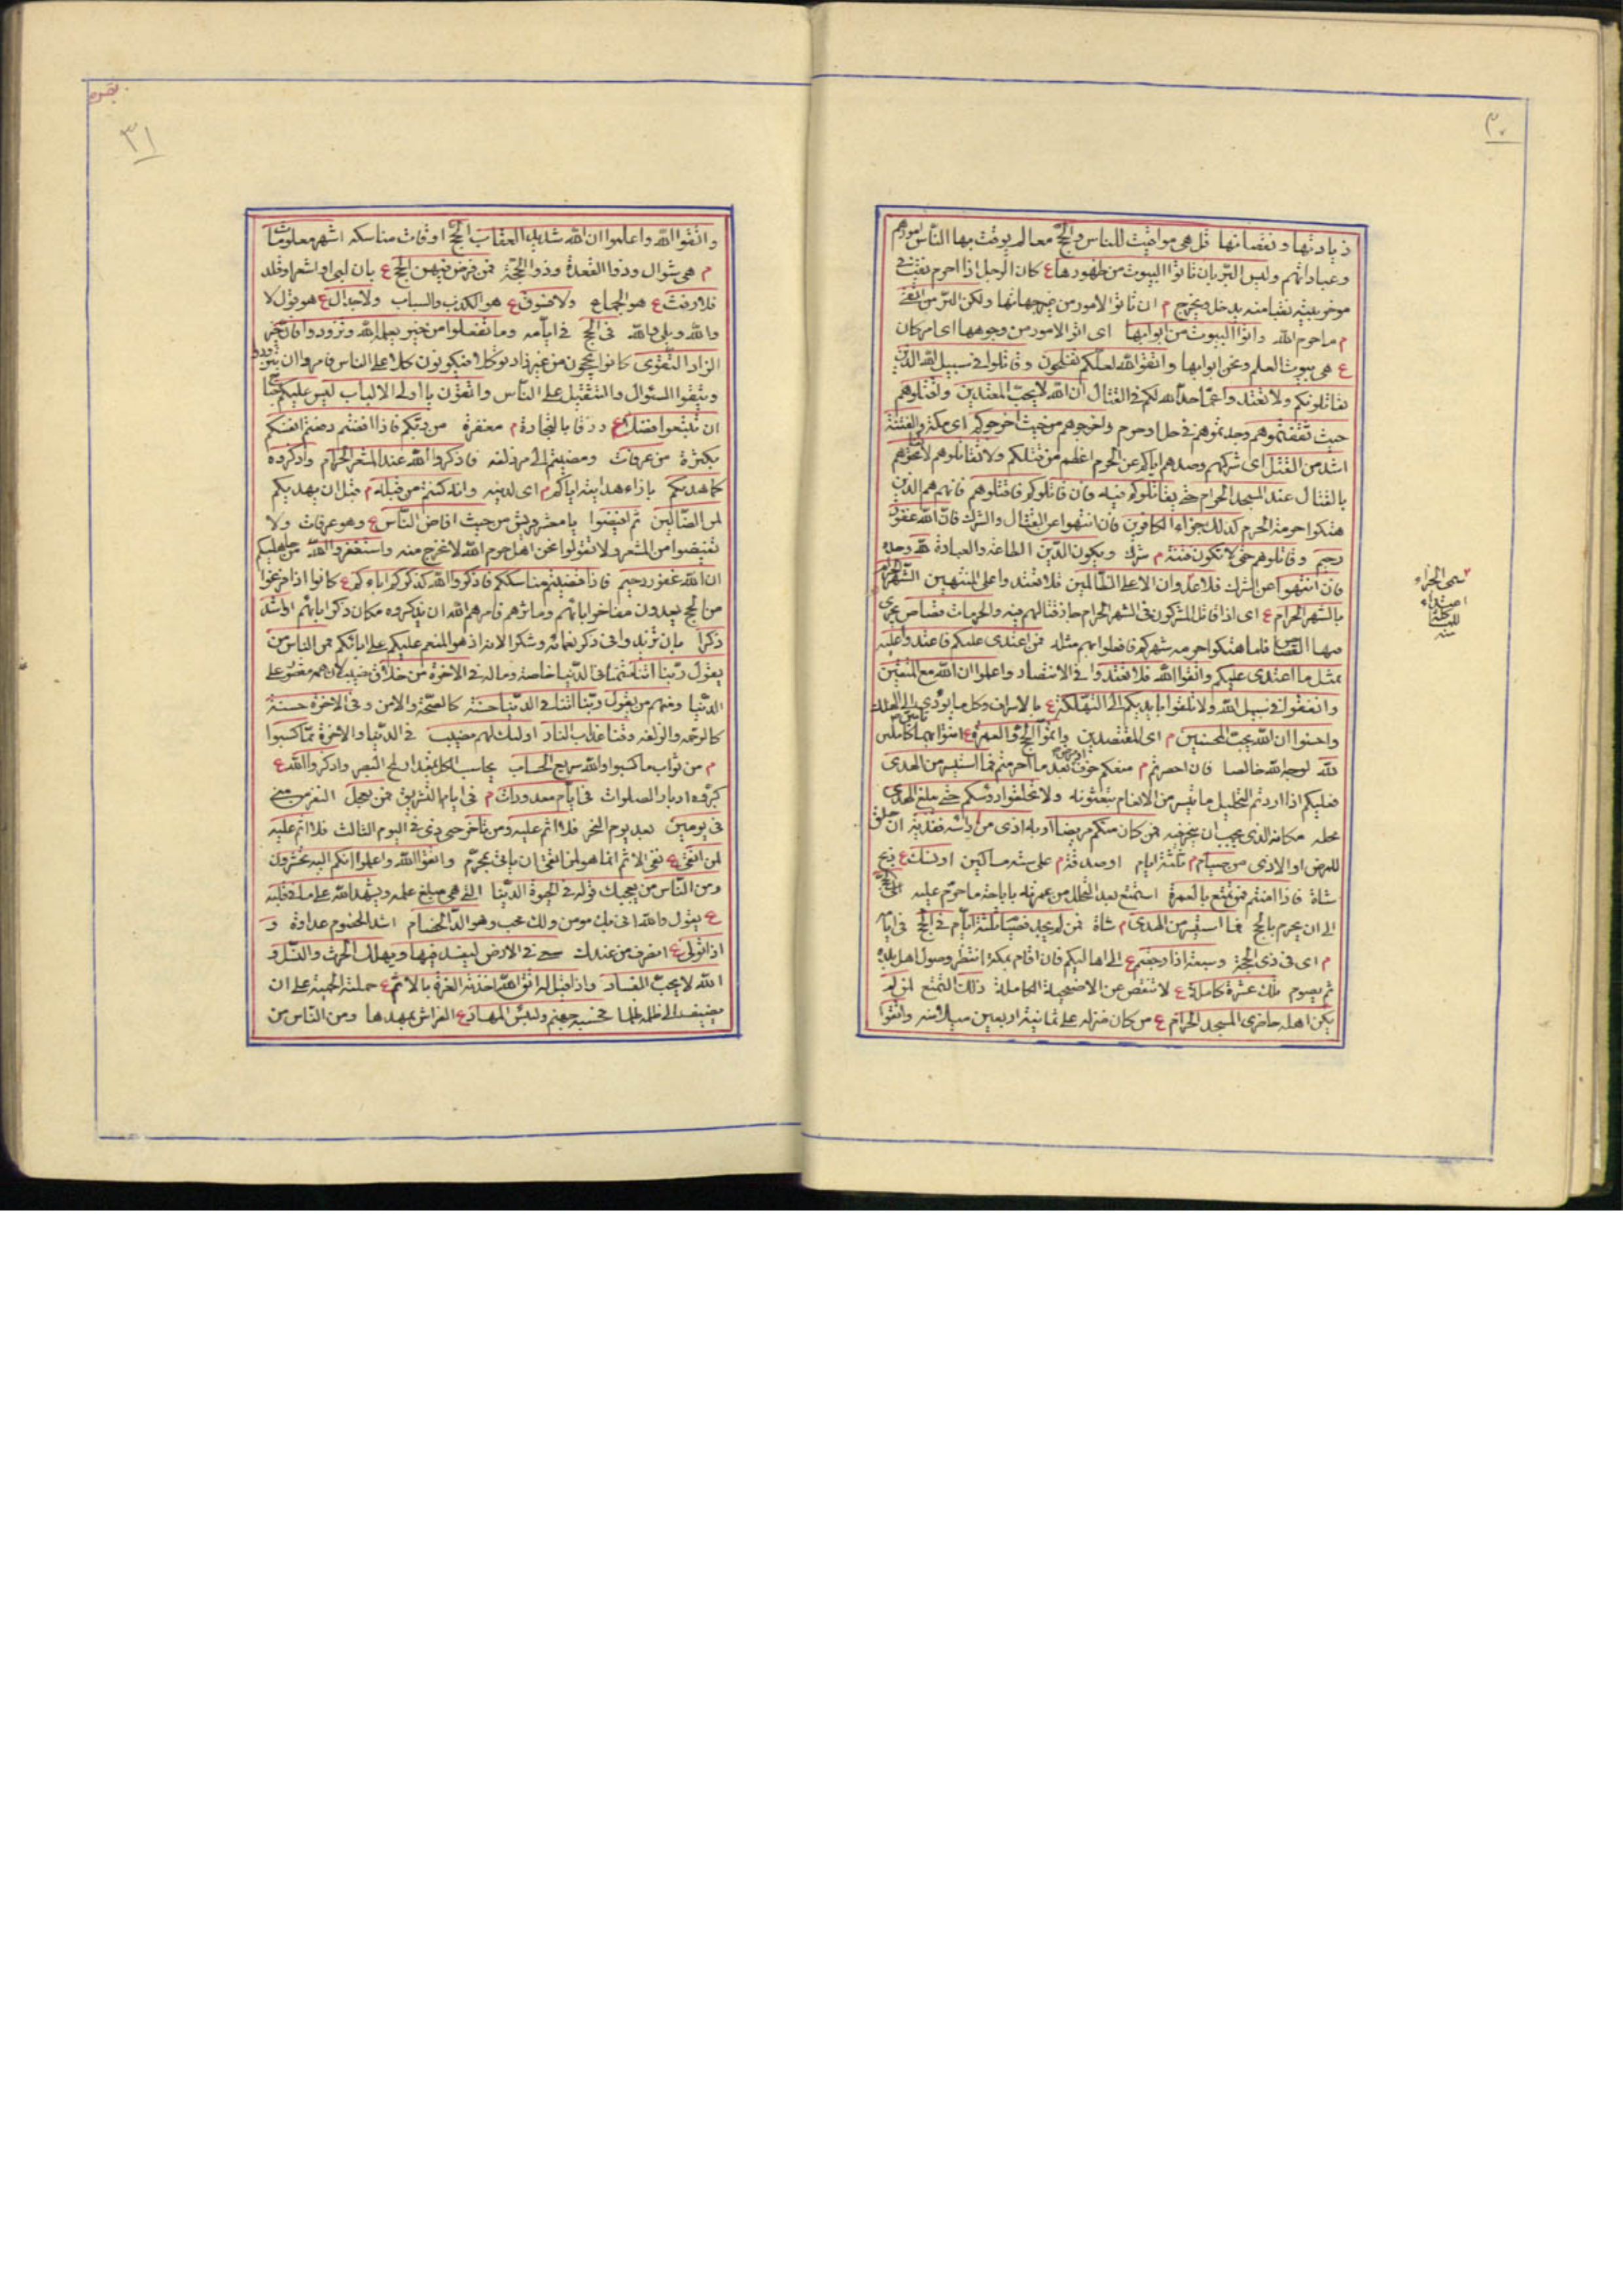 ٣٠
زيادتها و نقصانها قل هى مواقيت للناس والحج معالم يوقت بها الناس امورهم
وعباداتهم وليس البر بان تاتوا البيوت من ظهورها ع كان الرجل اذا احرم نقب فى
موخر بيته نقبا منه يدخل ويخرج م ان تاتوا الامور من غير جهاتها ولكن البر من اتقى
م ما حرم الله واتوا البيوت من ابوابها اى اتوا الامور من وجوهها اى امر كان
ع هى بيوت العلم ونحن ابوابها واتقوا الله لعلكم تفلحون وقاتلوا فى سبيل الله الذين
يقاتلونكم ولا تعتدوا عما حد الله لكم فى القتال ان الله لا يحب المعتدين واقتلوهم
حيث ثقفتموهم وجدتموهم فى حل او حرم واخرجوهم من حيث اخرجوكم اى مكة والفتنة
اشد من القتل اى شركهم وصدهم اياكم عن الحرم اعظم من قتلكم ولا تقاتلوهم لا تفتحوهم
بالقتال عند المسجد الحرام حتى يقاتلوكم فيه فان قاتلوكم فاقتلوهم فانهم هم الذين
هتكوا حرمة الحرم كذلك جزاء الكافرين فان انتهوا عن القتال والشرك فان الله غفور
رحيم وقاتلوهم حتى لا تكون فتنة م شرك ويكون الدين الطاعة والعبادة لله وحده
فان انتهوا عن الشرك فلا عدوان الا على الظالمين فلا تعتدوا على المنتهين الشهر الحرام
بالشهر الحرام ع اى اذا قاتل المشركون فى الشهر الحرام جاز قتالهم فيه والحرمات قصاص يجرى
فيها القصاص فلما هتكوا حرمة شهركم فافعلوا بهم مثله فمن اعتدى عليكم فاعتدوا عليه
بمثل ما اعتدى عليكم واتقوا الله فلا تعتدوا فى الانتصار واعلموا ان الله مع المتقين
وانفقوا فى سبيل الله ولا تلقوا بايديكم الى التهلكة ع بالاسراف وكل ما يؤدى الى الهلاك
واحسنوا ان الله يحب المحسنين م اى المقتصدين واتموا الحج والعمرة ع ائتوا بهما كاملين
لله لوجه الله خالصا فان احصرتم م منعكم خوف بعد ما احرمتم فما استيسر من الهدى
فعليكم اذا اردتم التحليل ما تيسر من الانعام تبعثونه ولا تحلقوا رؤسكم حتى يبلغ الهدى
محله مكانه الذى يجب ان ينحر فيه فمن كان منكم مريضا او به اذى من راسه ففدية ان حلق
للمرض او الاذى من صيام م ثلثة ايام او صدقة م على ستة مساكين او نسك ع ذبح
شاة فاذا امنتم فمن تمتع بالعمرة استمتع بعد التحلل من عمرته باباحة ما حرم عليه الى الحج
الى ان يحرم بالحج فما استيسر من الهدى م شاة فمن لم يجد فصيام ثلثة ايام فى الحج فى ايام
م اى فى ذى الحجة وسبعة اذا رجعتم ع الى اهاليكم فان اقام بمكة انتظر وصول اهل بلده
ثم يصوم تلك عشرة كاملة ع لا تنقص عن الاضحية الكاملة ذلك التمتع لمن لم
يكن اهله حاضرى المسجد الحرام ع من كان منزله على ثمانية اربعين ميلا منه واتقوا
بقره
٣١
واتقوا الله واعلموا ان الله شديد العقاب الحج اوقات مناسكه اشهر معلومات
م هى شوال وذوا القعدة وذوا الحجة فمن فرض فيهن الحج ع بان لبى او اشعر او قلد
فلا رفث ع هو الجماع ولا فسوق ع هو الكذب والسباب ولا جدال ع هو قول لا
والله وبلى والله فى الحج فى ايامه وما تفعلوا من خير يعلمه الله وتزودوا فان خير
الزاد التقوى كانوا يحجون من غير زاد توكلا فيكونون كلا على الناس فامروا ان يتزودوا
ويتقوا السؤال والتثقيل على الناس واتقون يا اولى الالباب ليس عليكم جناح
ان تبتغوا فضلا ع رزقا بالتجارة م مغفرة من ربكم فاذا افضتم دفعتم انفسكم
بكثرة من عرفات ومضيتم الى مزدلفه فاذكروا الله عند المشعر الحرام واذكروه
كما هديكم بازاء هدايته اياكم م اى لدينه وان كنتم من قبله م قبل ان يهديكم
لمن الضالين ثم افيضوا يا معشر قريش من حيث افاض الناس ع وهو عرفات ولا
تفيضوا من المشعر ولا تقولوا نحن اهل حرم الله لا نخرج منه واستغفروا الله من جاهليتكم
ان الله غفور رحيم فاذا قضيتم مناسككم فاذكروا الله كذكركم اباءكم ع كانوا اذا فرغوا
من الحج يعدون مفاخر ابائهم وماثرهم فامرهم الله ان يذكروه مكان ذكر ابائهم او اشد
ذكرا بان تزيدوا فى ذكر نعمائه وشكر الائه اذ هو المنعم عليكم على ابائكم فمن الناس من
يقول ربنا اتنا فى الدنيا خاصة وما له فى الاخرة من خلاق نصيب لان همه مقصور على
الدنيا ومنهم من يقول ربنا اتنا فى الدنيا حسنة كالصحة والامن وفى الاخرة حسنة
كالرحمه والزلفه وقنا عذاب النار اولئك لهم نصيب فى الدنيا والاخرة مما كسبوا
م من ثواب ما كسبوا والله سريع الحساب يحاسب الكل بقدر لمح البصر واذكروا الله ع
كبروه ادبار الصلوات فى ايام معدودات م فى ايام التشريق فمن تعجل النفر من منى
فى يومين بعد يوم النحر فلا اثم عليه ومن تأخر حتى رمى فى اليوم الثالث فلا اثم عليه
لمن اتقى ع نفى الاثم انما هو لمن اتقى ان ياتى بمحرم واتقوا الله واعلموا انكم اليه تحشرون
ومن الناس من يعجبك قوله فى الحيوة الدنيا التى هى مبلغ علمه ويشهد الله على ما فى قلبه
ع يقول والله انى بك مومن ولك محب وهو الد الخصام اشد الخصوم عداوة و
اذا تولى ع انصرف من عندك سعى فى الارض ليفسد فيها ويهلك الحرث والنسل و
الله لا يحب الفساد واذا قيل له اتق الله اخذته العزة بالاثم ع حملته الحمية على ان
يضيف الى ظلمه ظلما فحسبه جهنم ولبئس المهاد ع الفراش يمهدها ومن الناس من